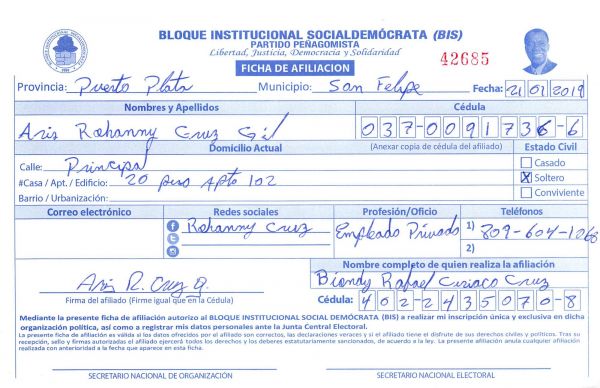 BLOQUE INSTITUCIONAL SOCIALDEMÓCRATA (BIS)
PARTIDO PEÑAGOMISTA
Libertad, Justicia, Democracia y Solidaridad
42685
FICHA DE AFILIACION
Provincia: Puerto Plata Municipio: San Felipe Fecha: 21/01/2019
Nombres y Apellidos Cédula
Aris Rohanny Cruz Gil 037-0091736-6
Domicilio Actual (Anexar copia de cédula del afiliado) Estado Civil
Calle: Principal Casado
#Casa / Apt. / Edificio: 20 piso Apto 102 X Soltero
Barrio / Urbanización: Conviviente
Correo electrónico Redes sociales Profesión/Oficio Teléfonos
Rohanny Cruz Empleado Privado 1) 809-604-1068
2)
Nombre completo de quien realiza la afiliación
Aris R. Cruz G. Biondy Rafael Ciriaco Cruz
Firma del afiliado (Firme igual que en la Cédula) Cédula: 402-2435070-8
Mediante la presente ficha de afiliación autorizo al BLOQUE INSTITUCIONAL SOCIAL DEMÓCRATA (BIS) a realizar mi inscripción única y exclusiva en dicha
organización política, así como a registrar mis datos personales ante la Junta Central Electoral.
La presente ficha de afiliación es válida si los datos ofrecidos por el afiliado son correctos, las declaraciones veraces y si el afiliado tiene el disfrute de sus derechos civiles y políticos. Tras su
recepción, sello y firmas autorizadas el afiliado ejercerá todos los derechos y los deberes estatutariamente sancionados, de acuerdo a la ley. La presente afiliación anula cualquier afiliación
realizada con anterioridad a la fecha que aparece en esta ficha.
SECRETARIO NACIONAL DE ORGANIZACIÓN SECRETARIO NACIONAL ELECTORAL